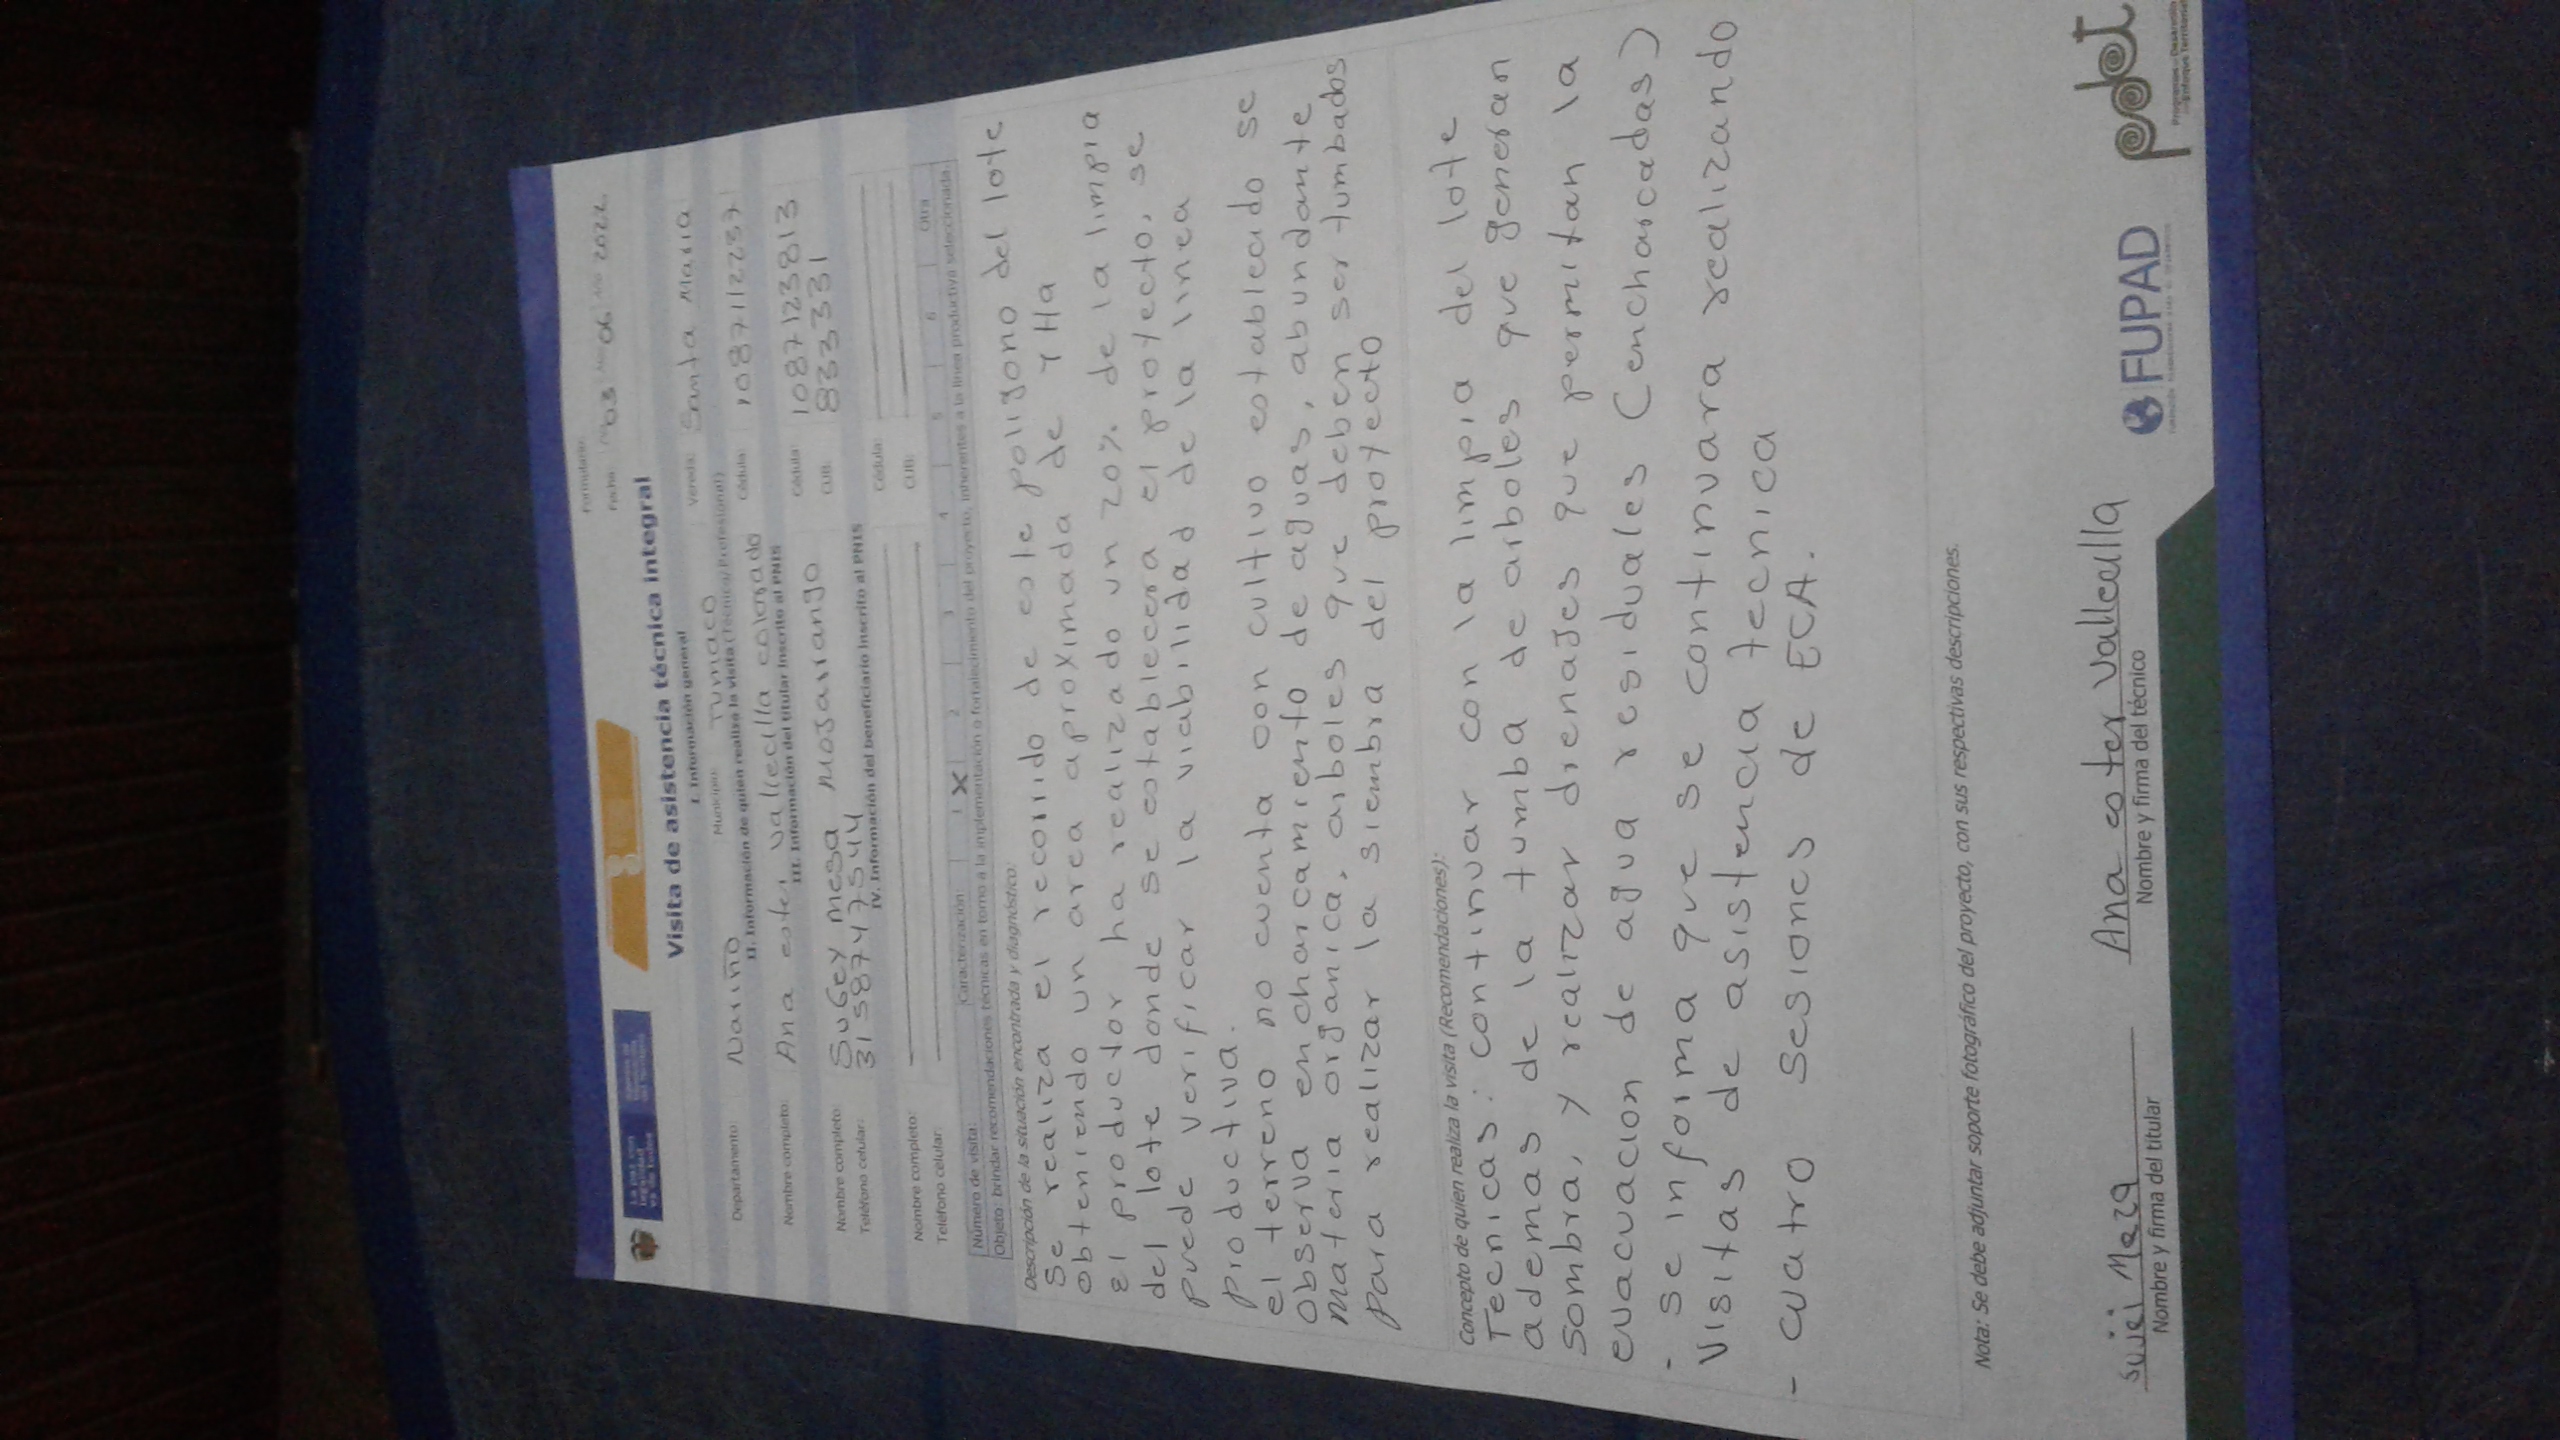 La paz con
legalidad
es de todos
Formulario:
Fecha 03 06 Año 2022
Visita de asistencia técnica integral
I. Información general
Departamento: Nariño Municipio: Tumaco Vereda: Santa Maria
II. Información de quien realiza la visita (Técnico/Profesional)
Nombre completo: Ana ester vallecilla colorado Cédula: 1087112237
III. Información del titular inscrito al PNIS
Nombre completo: Sugey mesa mosarango Cédula: 1087123813
Teléfono celular: 3158747544 CUB: 8333331
IV. Información del beneficiario inscrito al PNIS
Nombre completo: Cédula:
Teléfono celular: CUB:
Número de visita: Caracterización: 1 X 2 3 4 5 6 Otra
Objeto: brindar recomendaciones técnicas en torno a la implementación o fortalecimiento del proyecto, inherentes a la línea productiva seleccionada.
Descripción de la situación encontrada y diagnóstico:
Se realiza el recorrido de este poligono del lote
obteniendo un area aproximada de 1 Ha
El productor ha realizado un 20% de la limpia
del lote donde se establecera el proyecto, se
puede verificar la viabilidad de la linea
productiva.
el terreno no cuenta con cultivo establecido se
observa encharcamiento de aguas, abundante
materia organica, arboles que deben ser tumbados
para realizar la siembra del proyecto
Concepto de quien realiza la visita (Recomendaciones):
Tecnicas: continuar con la limpia del lote
ademas de la tumba de arboles que generan
sombra, y realizar drenajes que permitan la
evacuacion de agua residuales (encharcadas)
- se informa que se continuara realizando
visitas de asistencia tecnica
- cuatro sesiones de ECA.
Nota: Se debe adjuntar soporte fotográfico del proyecto, con sus respectivas descripciones.
sujei Meza Ana ester vallecilla
Nombre y firma del titular Nombre y firma del técnico
FUPAD
pdet
Programas de Desarrollo
con Enfoque Territorial